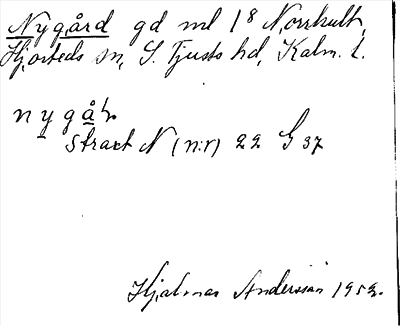 Nygård gd ml 1⁸ Norrhult,
Hjorteds sn, S. Tjusts hd, Kalm. l.
nygår
Straxt N (n:r) 22 G 37
Hjalmar Andersson 1952.